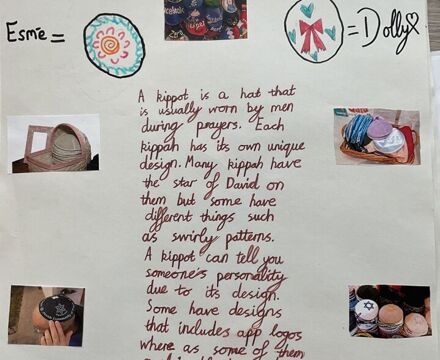 Esme =
= Dolly
A kippot is a hat that
is usually worn by men
during prayers. Each
kippah has its own unique
design. Many kippah have
the star of David on
them but some have
different things such
as swirly patterns.
A kippot can tell you
someone's personality
due to its design.
Some have designs
that includes app logos
where as some of them